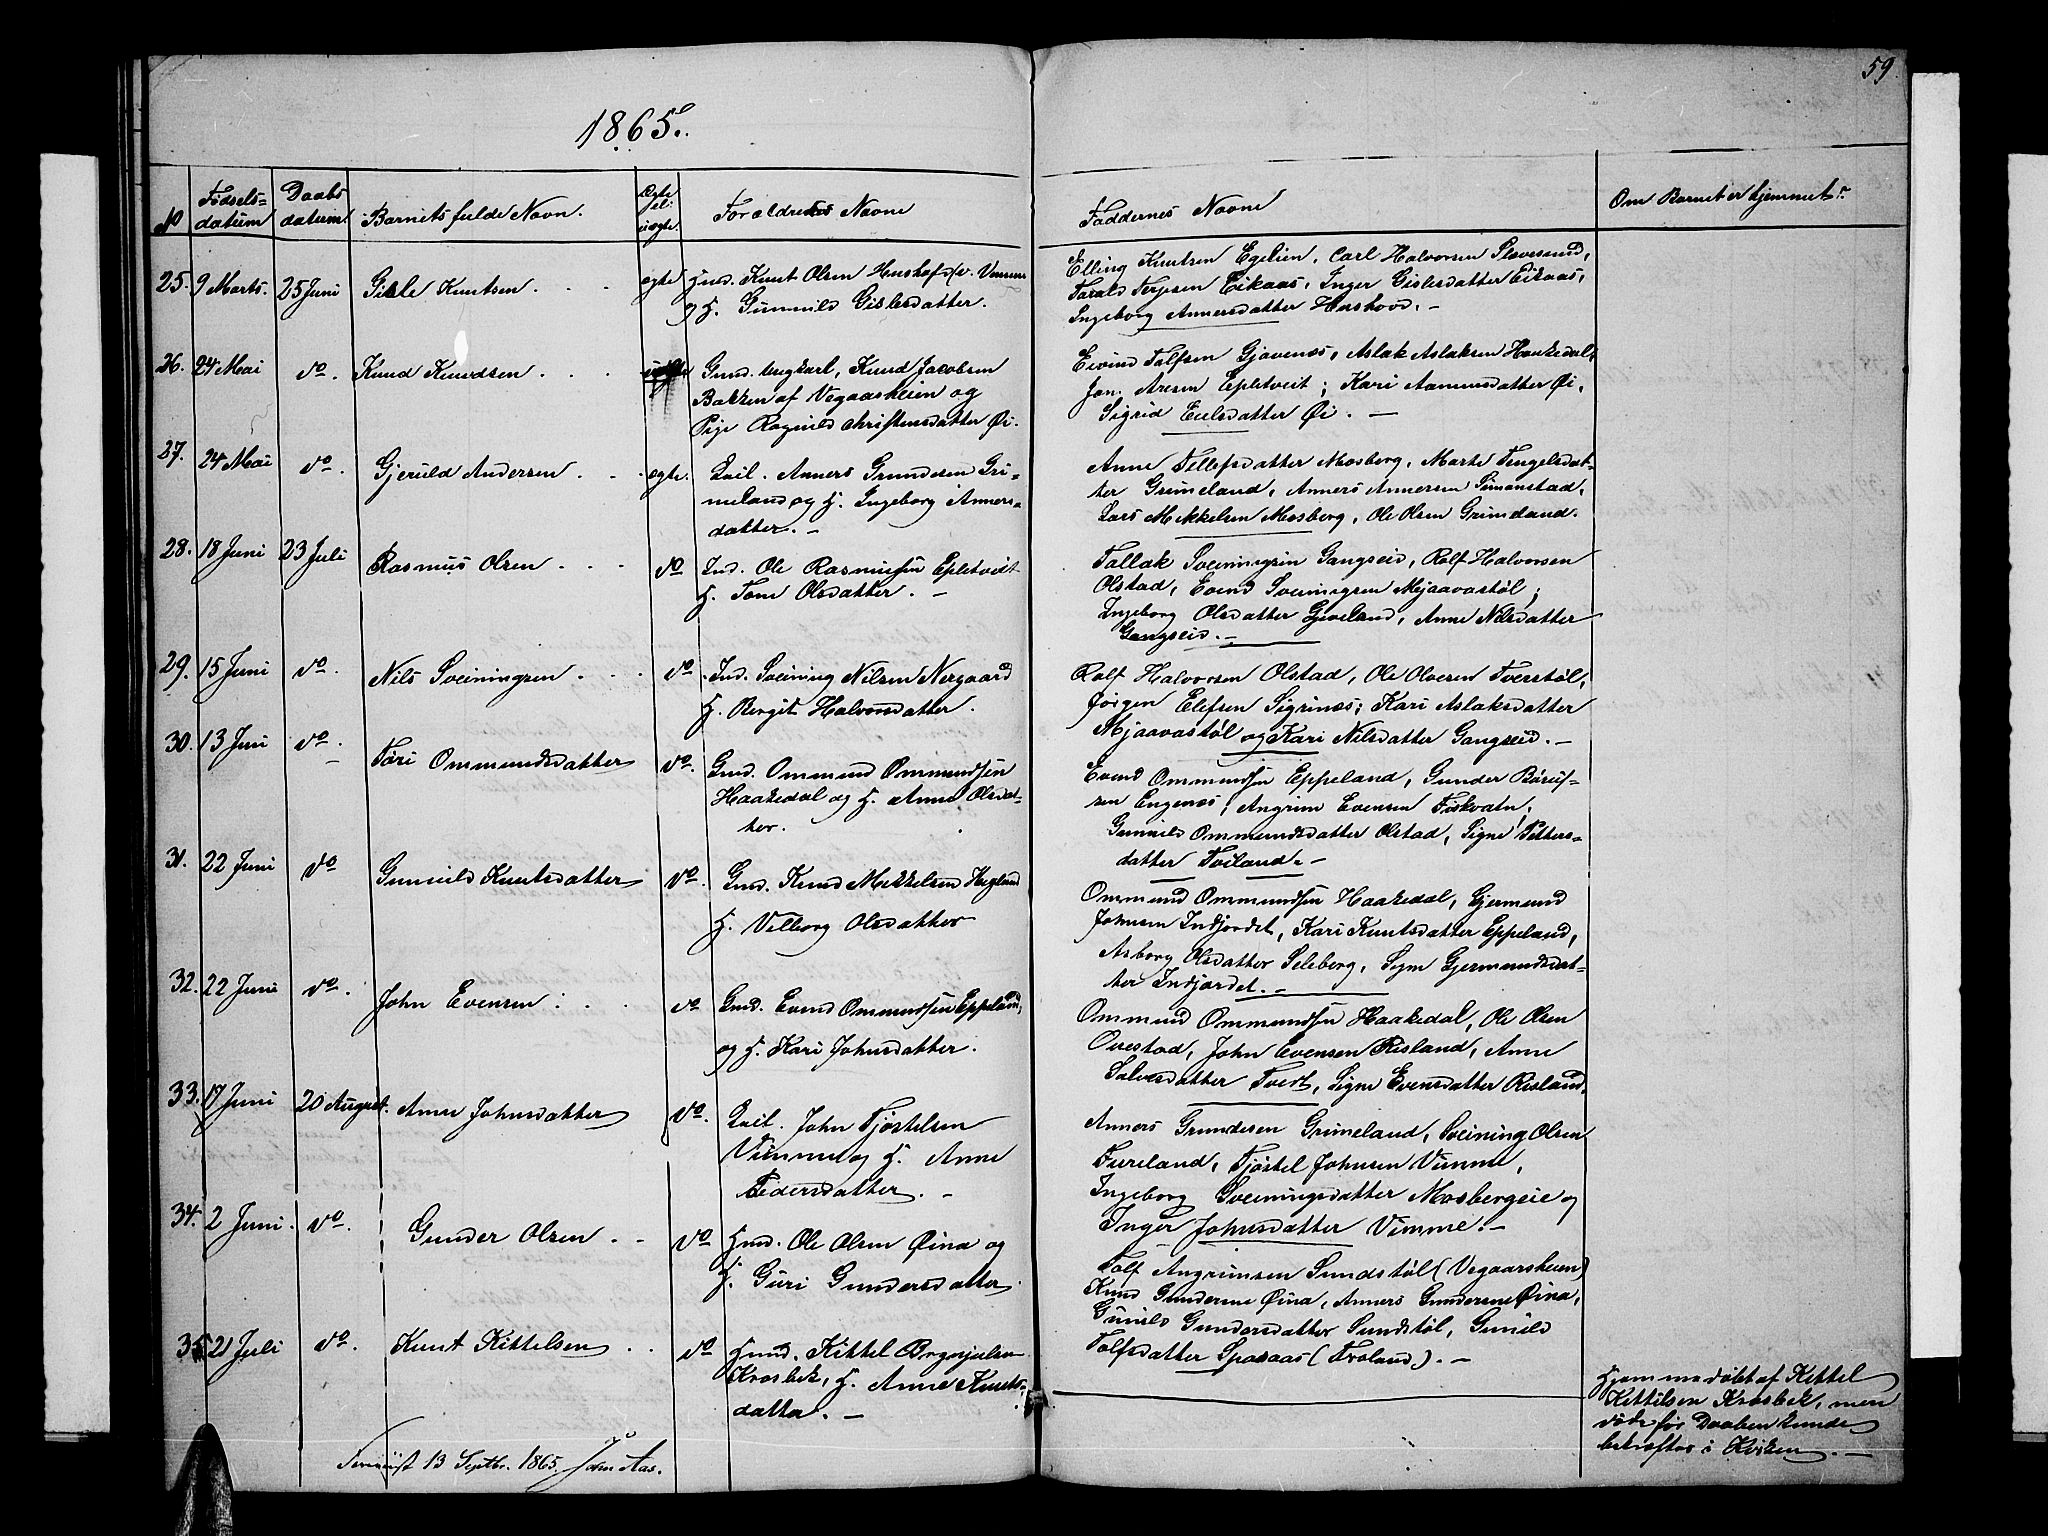 59
1865.
No
Fødsels-
datum
Daabs
datum
Barnets fulde Navn.
Ægte
el.
uægte.
Forældrenes Navne
Faddernes Navne
Om Barnet er hjemmet
25. 9 Marts. 25 Juni Gisle Knutsen . . . ægte
Knut Olsen
og H. Gunnild Gislesdatter.
Elling Knutsen Egelien, Carl Halvorsen
Tarald Terjesen Eikaas, Inger Gislesdatter Eikaas,
Ingeborg Annersdatter
26. 24 Mai do. Knud Knudsen . . . uægte
Gmd. Ungkarl, Knud Jacobsen
Bakken af Vegaarsheien og
Pige Ragnild Christensdatter Øi.
Eivind Tolfsen Gjavenæs, Aslak Aslaksen Haakedal,
Jon Aresen Epletveit; Kari Aamunsdatter Øi,
Sigrid Eulsdatter Øi. —
27. 24 Mai do. Gjeruld Andersen . . . ægte.
Leil. Anners Grundesen Gri-
meland og H. Ingeborg Anners-
datter. —
Anne Tellefsdatter Mosberg, Marte Tengelsdat-
ter Grimeland, Anners Annersen Simonstad,
Lars Mikkelsen Mosberg, Ole Olsen Grimeland.
28. 18 Juni 23 Juli Rasmus Olsen . . . do
Ind. Ole Rasmusen Epletvedt
H. Tone Olsdatter. —
Tallak Sveiningsen Gangseid, Rolf Halvorsen
Olstad, Evend Sveiningsen Mjaavastøl;
Ingeborg Olsdatter Gjeveland, Anne Nilsdatter
Gangseid. —
29. 15 Juni do. Nils Sveiningsen . . . do.
Ind. Sveining Nilsen Nergaard
H. Bergit Halvorsdatter.
Rolf Halvorsen Olstad, Ole Olvesen Tverstøl,
Jørgen Elefsen Sigrinæs; Kari Aslaksdatter
Mjaavastøl og Kari Nilsdatter Gangseid. —
30. 13 Juni do. Tori Ommundsdatter do.
Gmd. Ommund Ommundsen
Haakedal og H. Anne Olsdat-
ter.
Evend Ommundsen Eppeland, Gunder Børuf-
sen Engenæs, Angrim Evensen Fiskvatn,
Gunnild Ommundsdatter Olstad, Signe Petters-
datter Tveiland. —
31. 22 Juni do Gunnild Knutsdatter do.
Gmd. Knud Mikkelsen Hegland
H. Vilborg Olsdatter
Ommund Ommundsen Haakedal, Gjermund
Johnsen Indjordet, Kari Knutsdatter Eppeland,
Asborg Olsdatter Seleberg, Signe Gjermundsdat-
ter Indjordet. —
32. 22 Juni do. John Evensen . . . do
Gmd. Evend Ommundsen Eppeland,
og H. Kari Johnsdatter.
Ommund Ommundsen Haakedal, Ole Olsen
Ovestad, John Evensen Risland, Anne
Salvesdatter Tveit, Signe Evensdatter Risland.
33. 17 Juni 20 August. Anne Johnsdatter do.
Leil. John Tjøstelsen
Vimme og H. Anne
Pedersdatter. —
Anners Grundesen Grimeland, Sveining Olsen
Fureland, Tjøstel Johnsen Vimme,
Ingeborg Sveiningsdatter Mosbergeie og
Inger Johnsdatter Vimme. —
34. 2 Juni. do. Gunder Olsen . . do
Hmd. Ole Olsen Øina og
H. Guri Gundersdatter.
Tolf Angrimsen Sundstøl (Vegaarsheien)
Knud Gundersen Øina, Anners Gundersen Øina,
Gunild Gundersdatter Sundstøl, Gunild
Tolfsdatter Sparaas (Froland). —
35. 21 Juli do. Knut Kittelsen . . do
Hmd. Kittel Brynjulsen
Krosbek, H. Anne Knuts-
datter. —
Hjemmedøbt af Kittel
Kittilsen Krosbek, men
døde før Daaben kunde
bekræftes i Kirken. —
13 Septbr. 1865. John Aas.